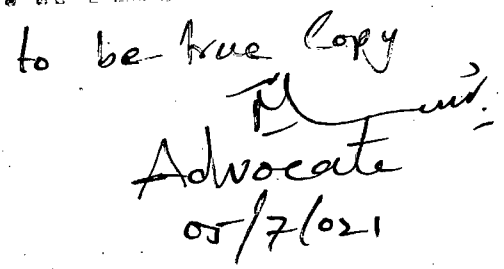 to be true Copy
Advocate
05/7/021